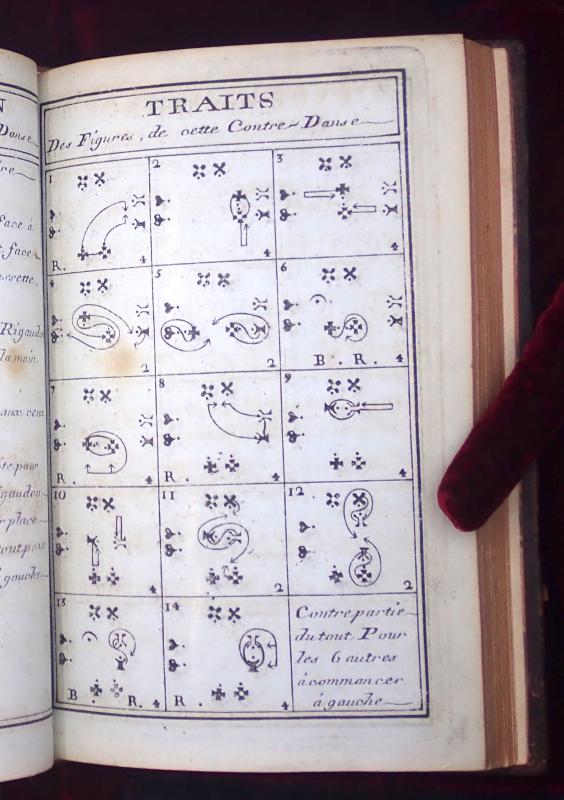 N
Danse
TRAITS
Des Figures, de cette Contre-Danse
face à
face
Rigaud
la main
aux ceux
pour
gaudon
place
tout pour
gauche
1
R. 4
2
4
3
4
4
2
5
2
6
B. R. 4
7
R. 4
8
R. 4
9
4
10
4
11
2
12
2
13
B. R. 4
14
R. 4
Contre partie
du tout Pour
les 6 autres
à commancer
à gauche